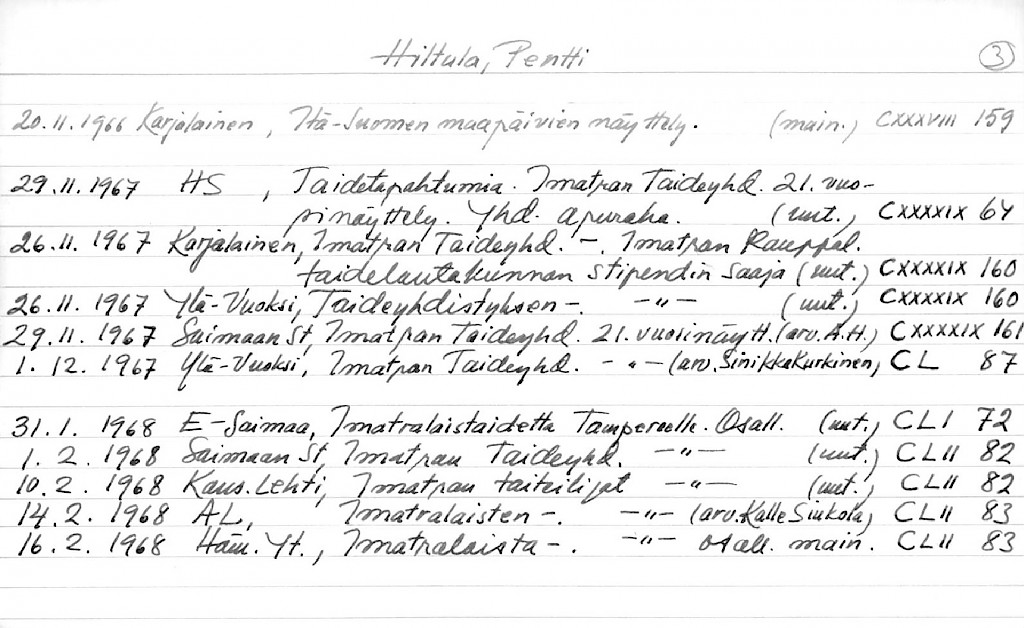 Hiltula, Pentti 3
20.11.1966 Karjalainen, Itä-Suomen maapäivien näyttely. (main.) CXXXVIII 159
29.11.1967 HS, Taidetapahtumia. Imatran Taideyhd. 21. vuo-
sinäyttely. Yhd. apuraha. (uut.) CXXXXIX 64
26.11.1967 Karjalainen, Imatran Taideyhd. -. Imatran Kauppal.
taidelautakunnan stipendin saaja (uut.) CXXXXIX 160
26.11.1967 Ylä-Vuoksi, Taideyhdistyksen -. -"- (uut.) CXXXXIX 160
29.11.1967 Saimaan St, Imatran Taideyhd. 21. vuosinäytt. (arv. A.H.) CXXXXIX 161
1.12.1967 Ylä-Vuoksi, Imatran Taideyhd. -"- (arv. Sinikka Kurkinen) CL 87
31.1.1968 E-Saimaa, Imatralaistaidetta Tampereelle. Osall. (uut.) CLI 72
1.2.1968 Saimaan St, Imatran Taideyhd. -"- (uut.) CLII 82
10.2.1968 Kans. Lehti, Imatran taiteilijat -"- (uut.) CLII 82
14.2.1968 AL, Imatralaisten -. -"- (arv. Kalle Sinkola) CLII 83
16.2.1968 Häm. Yt., Imatralaista -. -"- osall. main. CLII 83